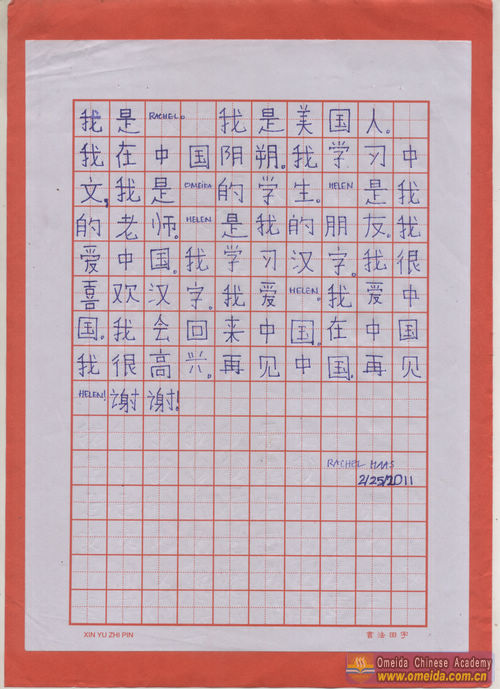 我是RACHEL。我是美国人。
我在中国阴朔。我学习中
文,我是OMEIDA的学生。HELEN是我
的老师。HELEN是我的朋友。我
爱中国。我学习汉字。我很
喜欢汉字。我爱HELEN。我爱中
国。我会回来中国。在中国
我很高兴。再见中国。再见
HELEN!谢谢!
RACHEL HAAS
2/25/2011
XIN YU ZHI PIN 書法田字
Omeida Chinese Academy
www.omeida.com.cn